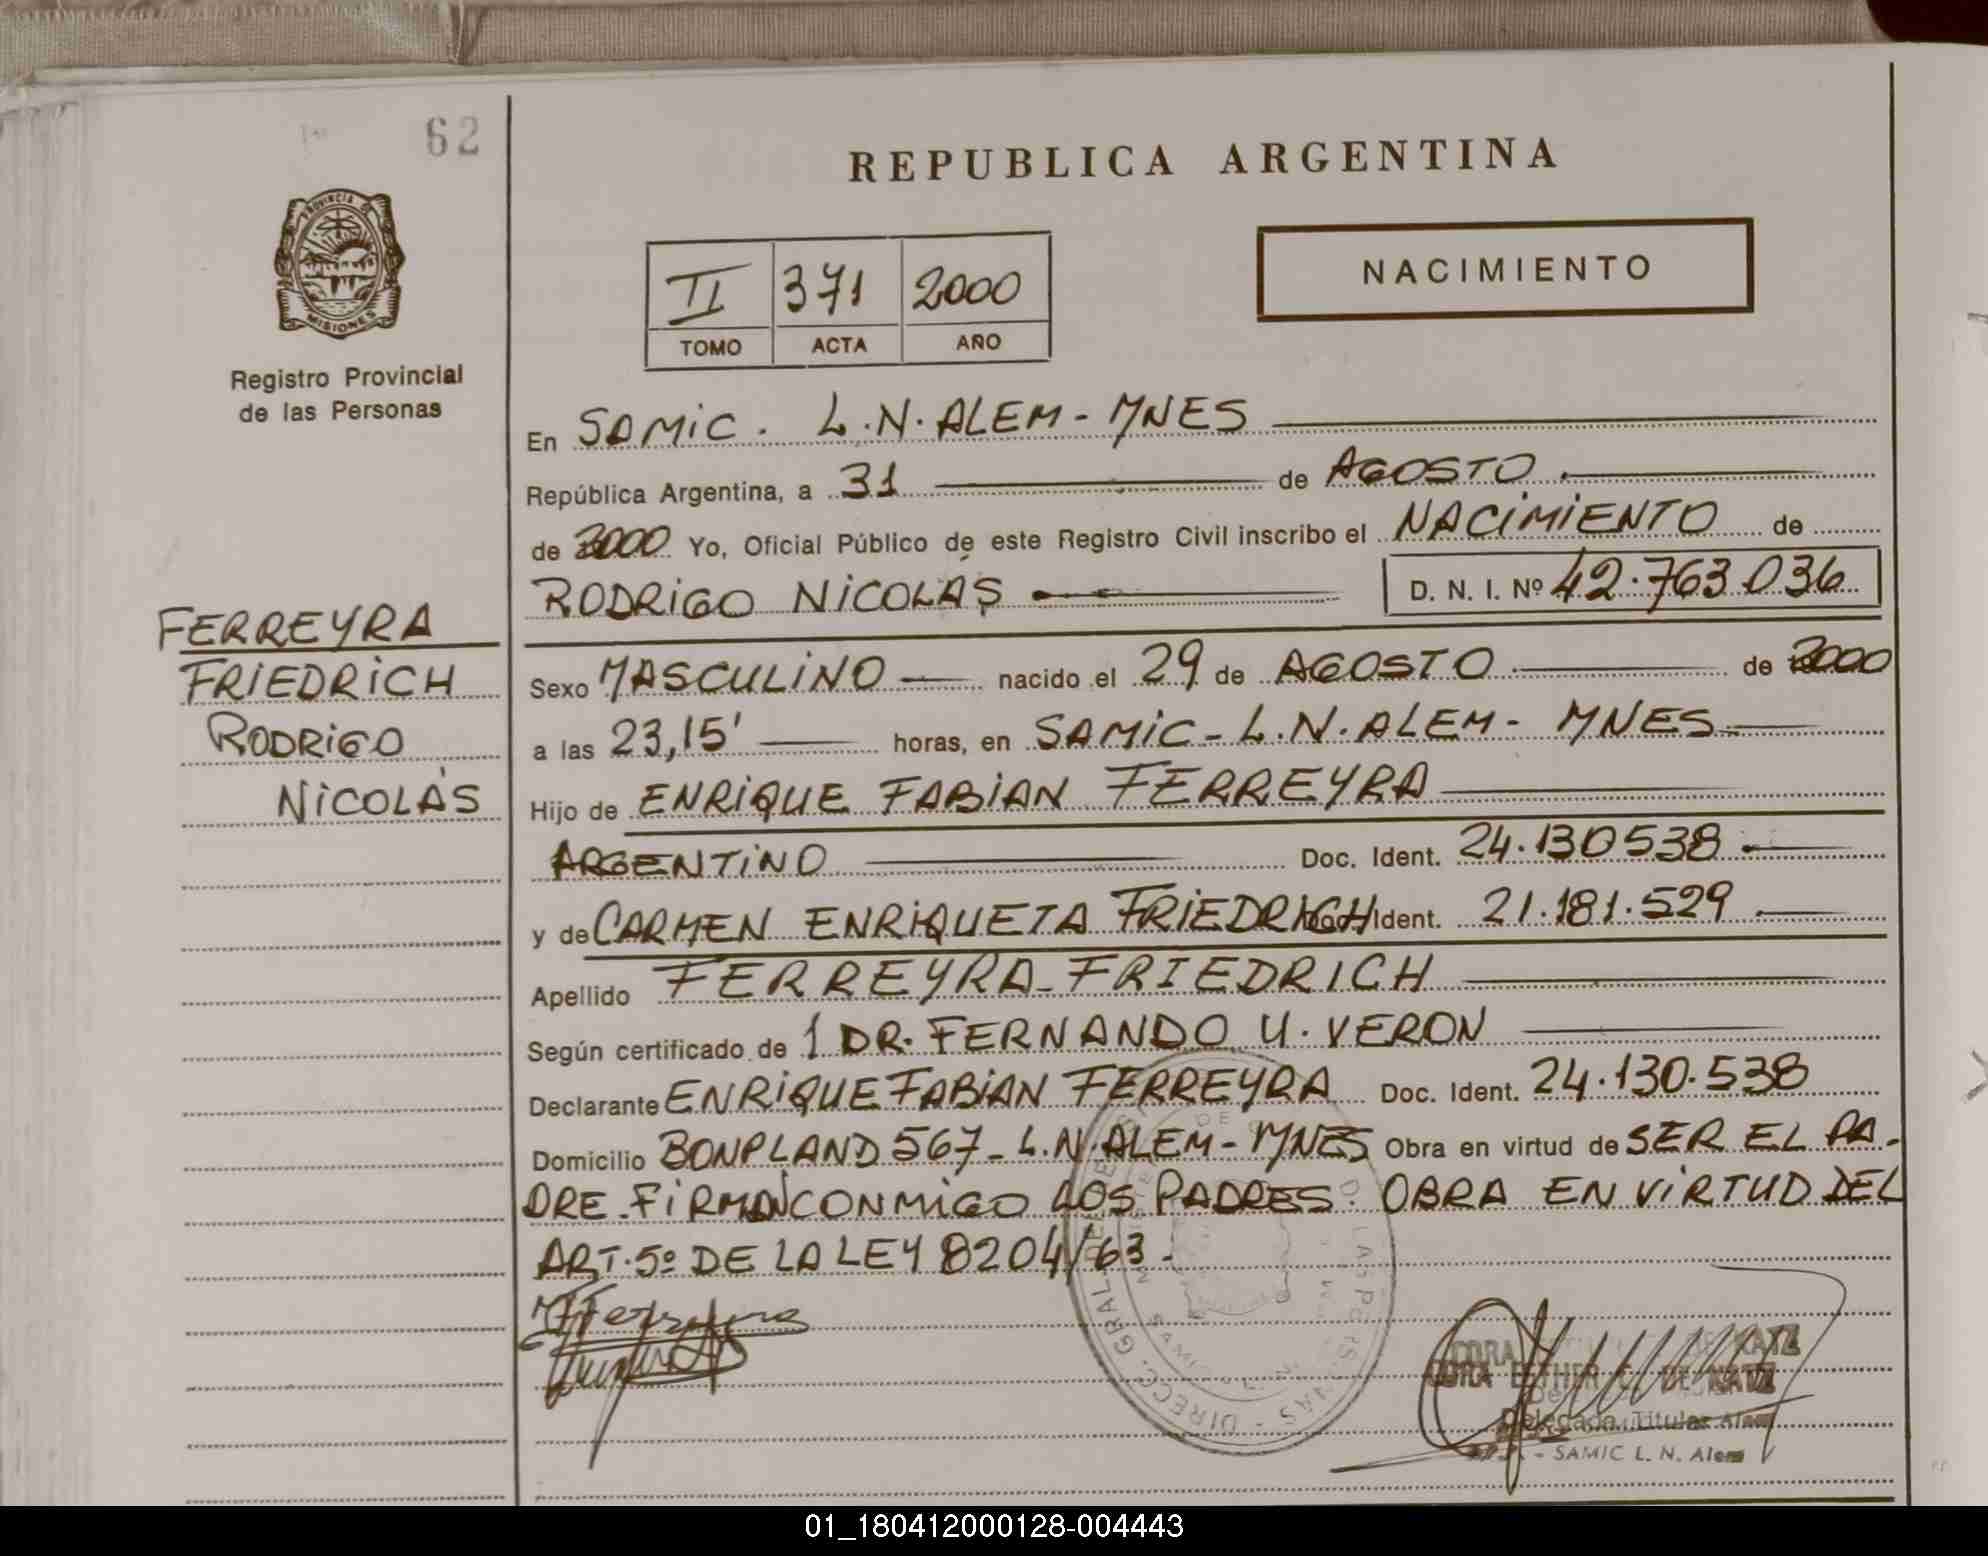 62
REPUBLICA ARGENTINA
PROVINCIA DE
MISIONES
Registro Provincial
de las Personas
II 371 2000
TOMO ACTA AÑO
NACIMIENTO
En SAMIC. L.N. ALEM - MNES
República Argentina, a 31 de AGOSTO.
de 2000 Yo, Oficial Público de este Registro Civil inscribo el NACIMIENTO de
RODRIGO NICOLÁS D. N. I. Nº 42.763.036
FERREYRA
FRIEDRICH
RODRIGO
NICOLÁS
Sexo MASCULINO nacido el 29 de AGOSTO de 2000
a las 23,15' horas, en SAMIC - L.N. ALEM - MNES.
Hijo de ENRIQUE FABIAN FERREYRA
ARGENTINO Doc. Ident. 24.130538
y de CARMEN ENRIQUETA FRIEDRICH Doc. Ident. 21.181.529
Apellido FERREYRA - FRIEDRICH
Según certificado de 1 DR. FERNANDO U. VERON
Declarante ENRIQUE FABIAN FERREYRA Doc. Ident. 24.130.538
Domicilio BONPLAND 567 - L.N. ALEM - MNES Obra en virtud de SER EL PA-
DRE. FIRMAN CONMIGO LOS PADRES. OBRA EN VIRTUD DEL
ART. 5º DE LA LEY 8204/63.
CORA ESTHER DE KATZ
Delegada Titular Alem
SAMIC L. N. Alem
01_180412000128-004443